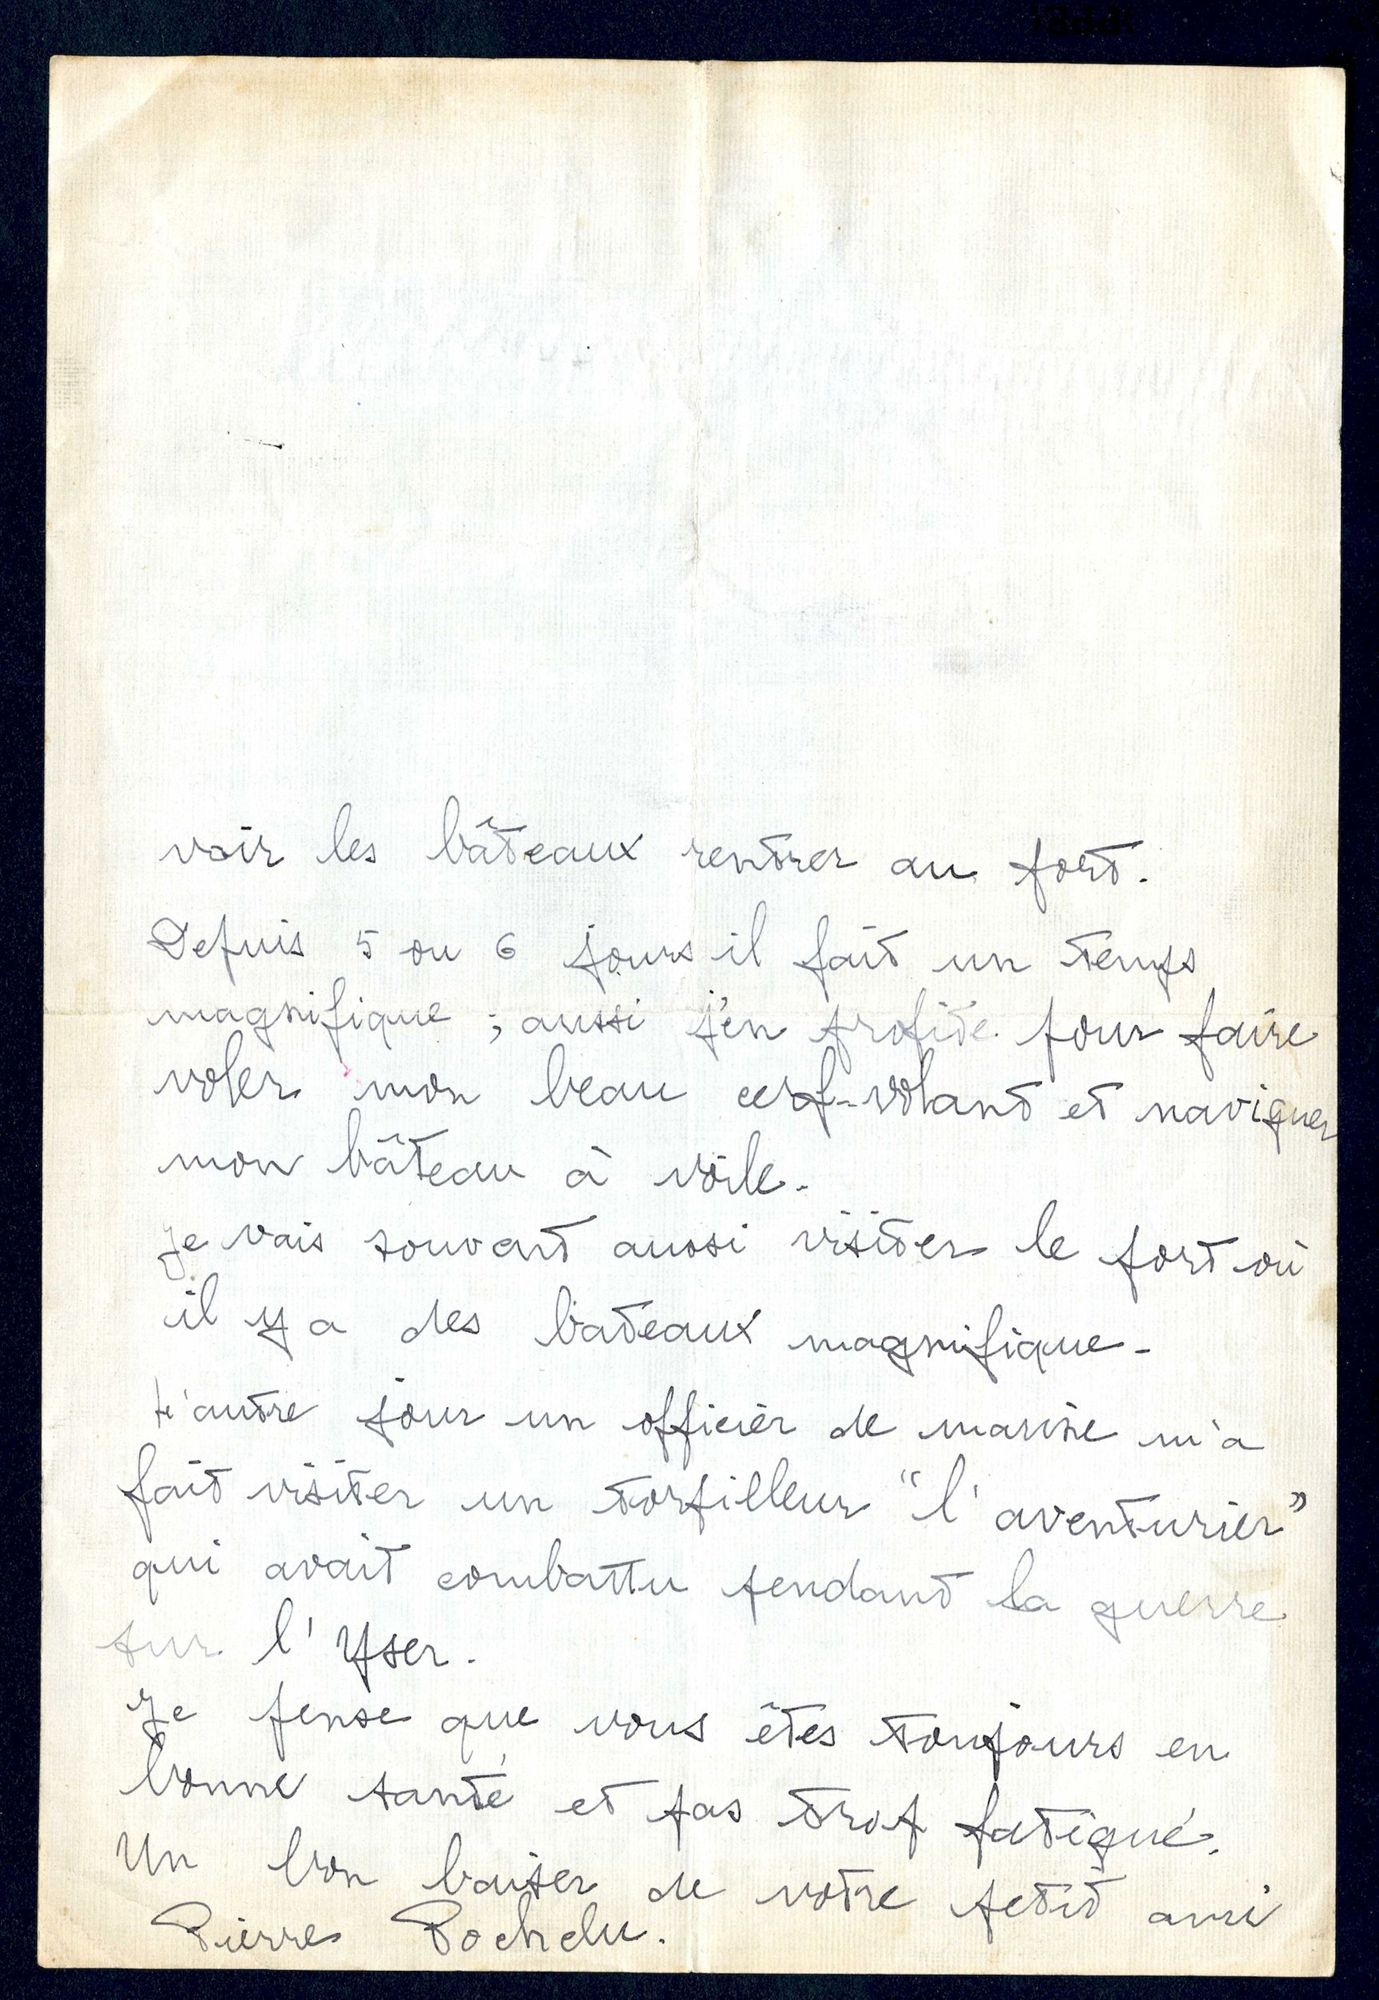 voir les bâteaux rentrer au port.
Depuis 5 ou 6 jours il fait un temps
magnifique ; aussi j'en profite pour faire
voler mon beau cerf-volant et naviguer
mon bâteau à voile.
Je vais souvent aussi visiter le port où
il y a des bateaux magnifique.
L'autre jour un officier de marine m'a
fait visiter un torpilleur "l'aventurier"
qui avait combattu pendant la guerre
sur l'Yser.
Je pense que vous êtes toujours en
bonne santé et pas trop fatigué.
Un bon baiser de votre petit ami
Pierre